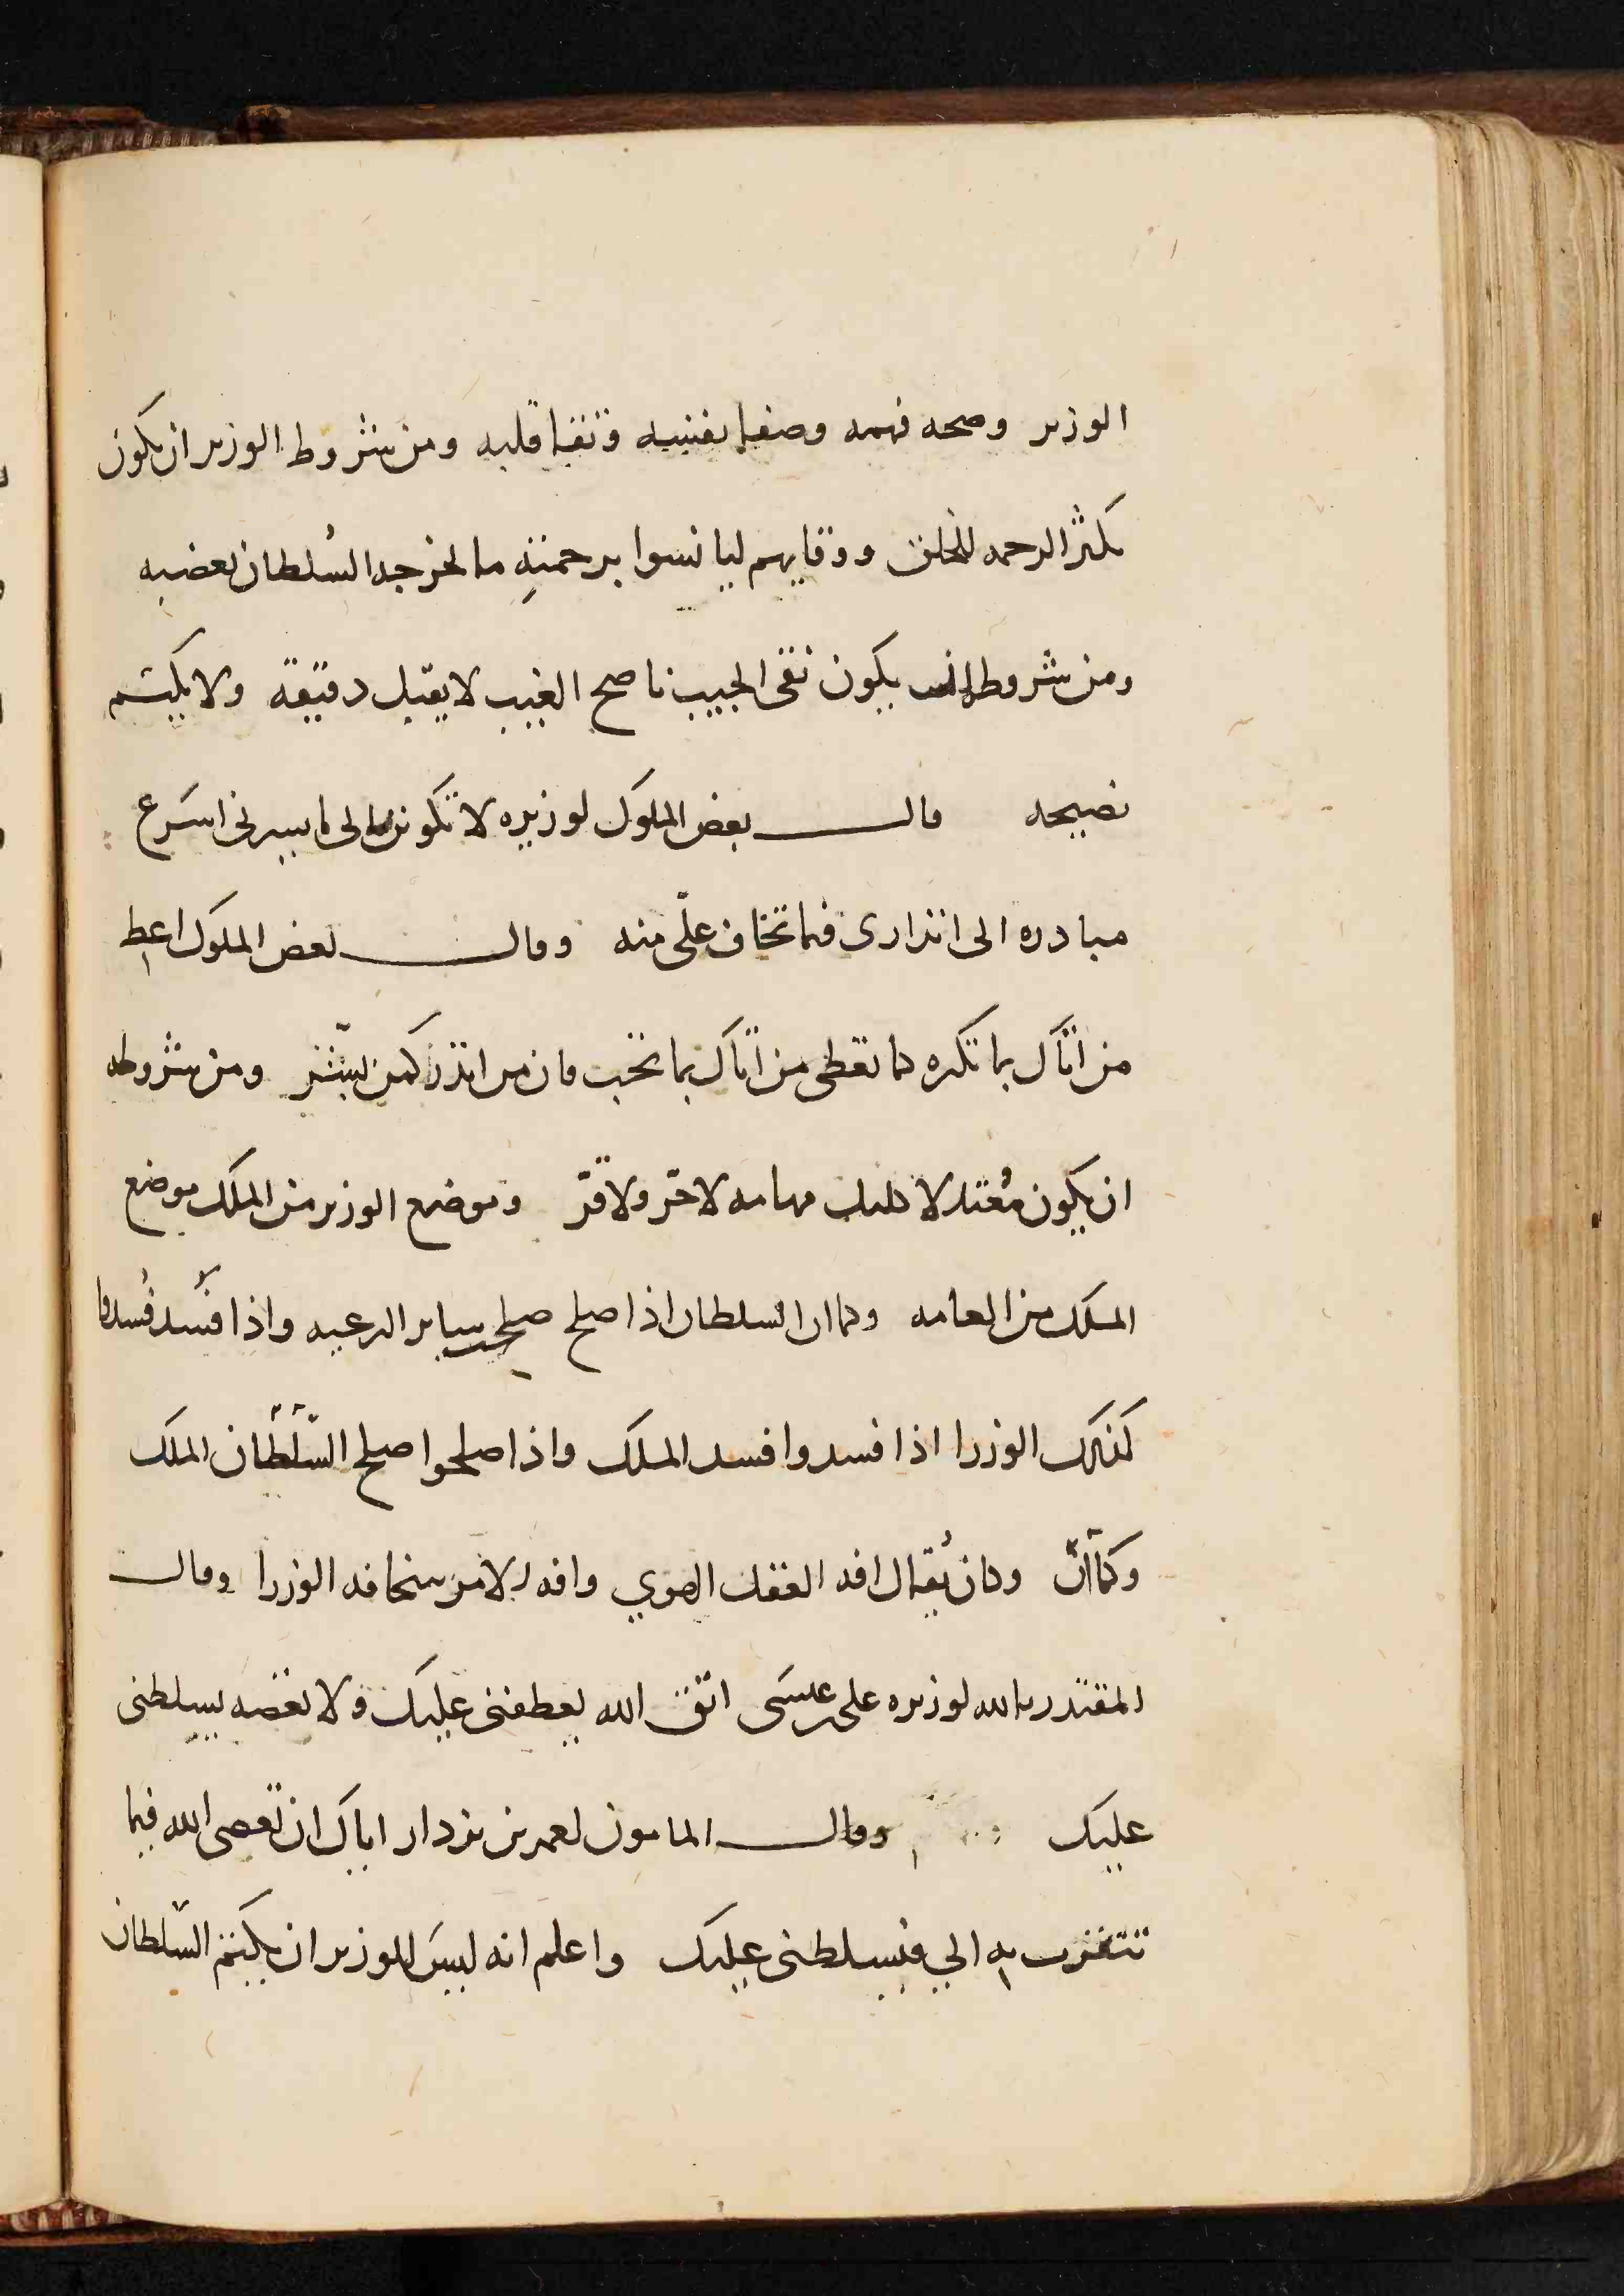 الوزير وصحه فهمه وصفا نفسه ونقا قلبه ومن شروط الوزير ان يكون
مكثر الرحمه للخلق ليانسوا برحمته ما يحرجه السلطان بغضبه
ومن شروطه ان يكون نقى الجيب ناصح الغيب لا يقبل دقيقة ولا يكتم
نصيحه قال بعض الملوك لوزيره لا تكونن الى ما يسرنى اسرع
مبادره الى انذارى فيما تخاف علّى منه وقال بعض الملوك اعط
من اتاك بما تكره كما تعطى من اتاك بما تحب فان من انذر كمن بشّر ومن شروطه
ان يكون مُعتدلا كليل تهامه لا حرّ ولا قرّ وموضع الوزير من الملك موضع
الملك من العامه وكما ان السلطان اذا صلح صلحت ساير الرعيه واذا فسد فسدوا
كذلك الوزرا اذا فسدوا فسد الملك واذا صلحوا صلح السّلطان الملك
وكماانّ وكان يُقال افه العقل الهوي وافه الامر سخافه الوزرا وقال
المقتدر بالله لوزيره على بن عيسَى اتق الله يعطفنى عليك ولا تعصه يسلطنى
عليك وقال المامون لعمر بن اياك ان تعصى الله فيما
تتقرب به الي فيسلطنى عليك واعلم انه ليسَ للوزير ان يكتم السّلطان